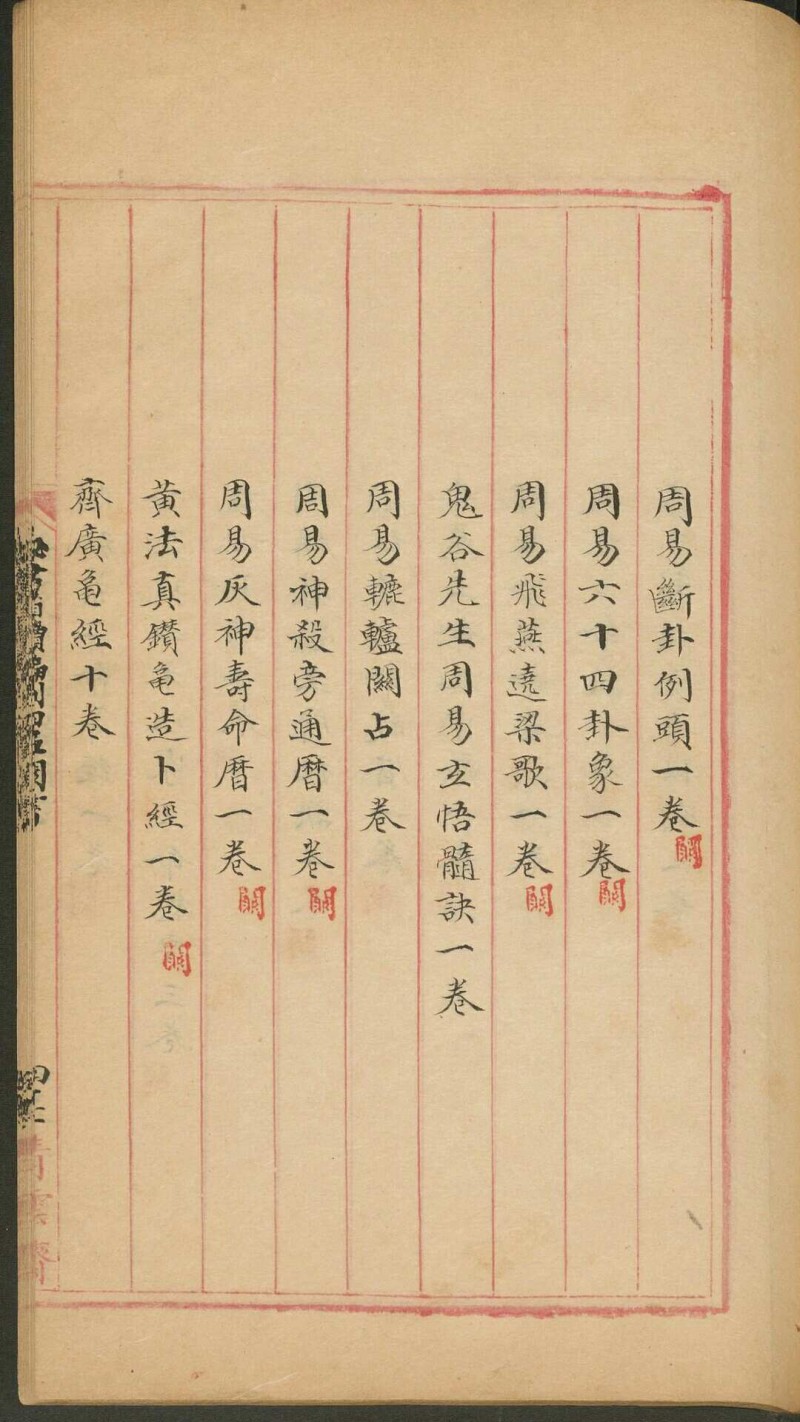 周易斷卦例頭一卷闕
周易六十四卦象一卷闕
周易飛燕遶梁歌一卷闕
鬼谷先生周易玄悟髓訣一卷
周易轆轤關占一卷
周易神殺旁通曆一卷闕
周易灰神壽命曆一卷闕
黃法真鑽龜造卜經一卷闕
齊廣龜經十卷